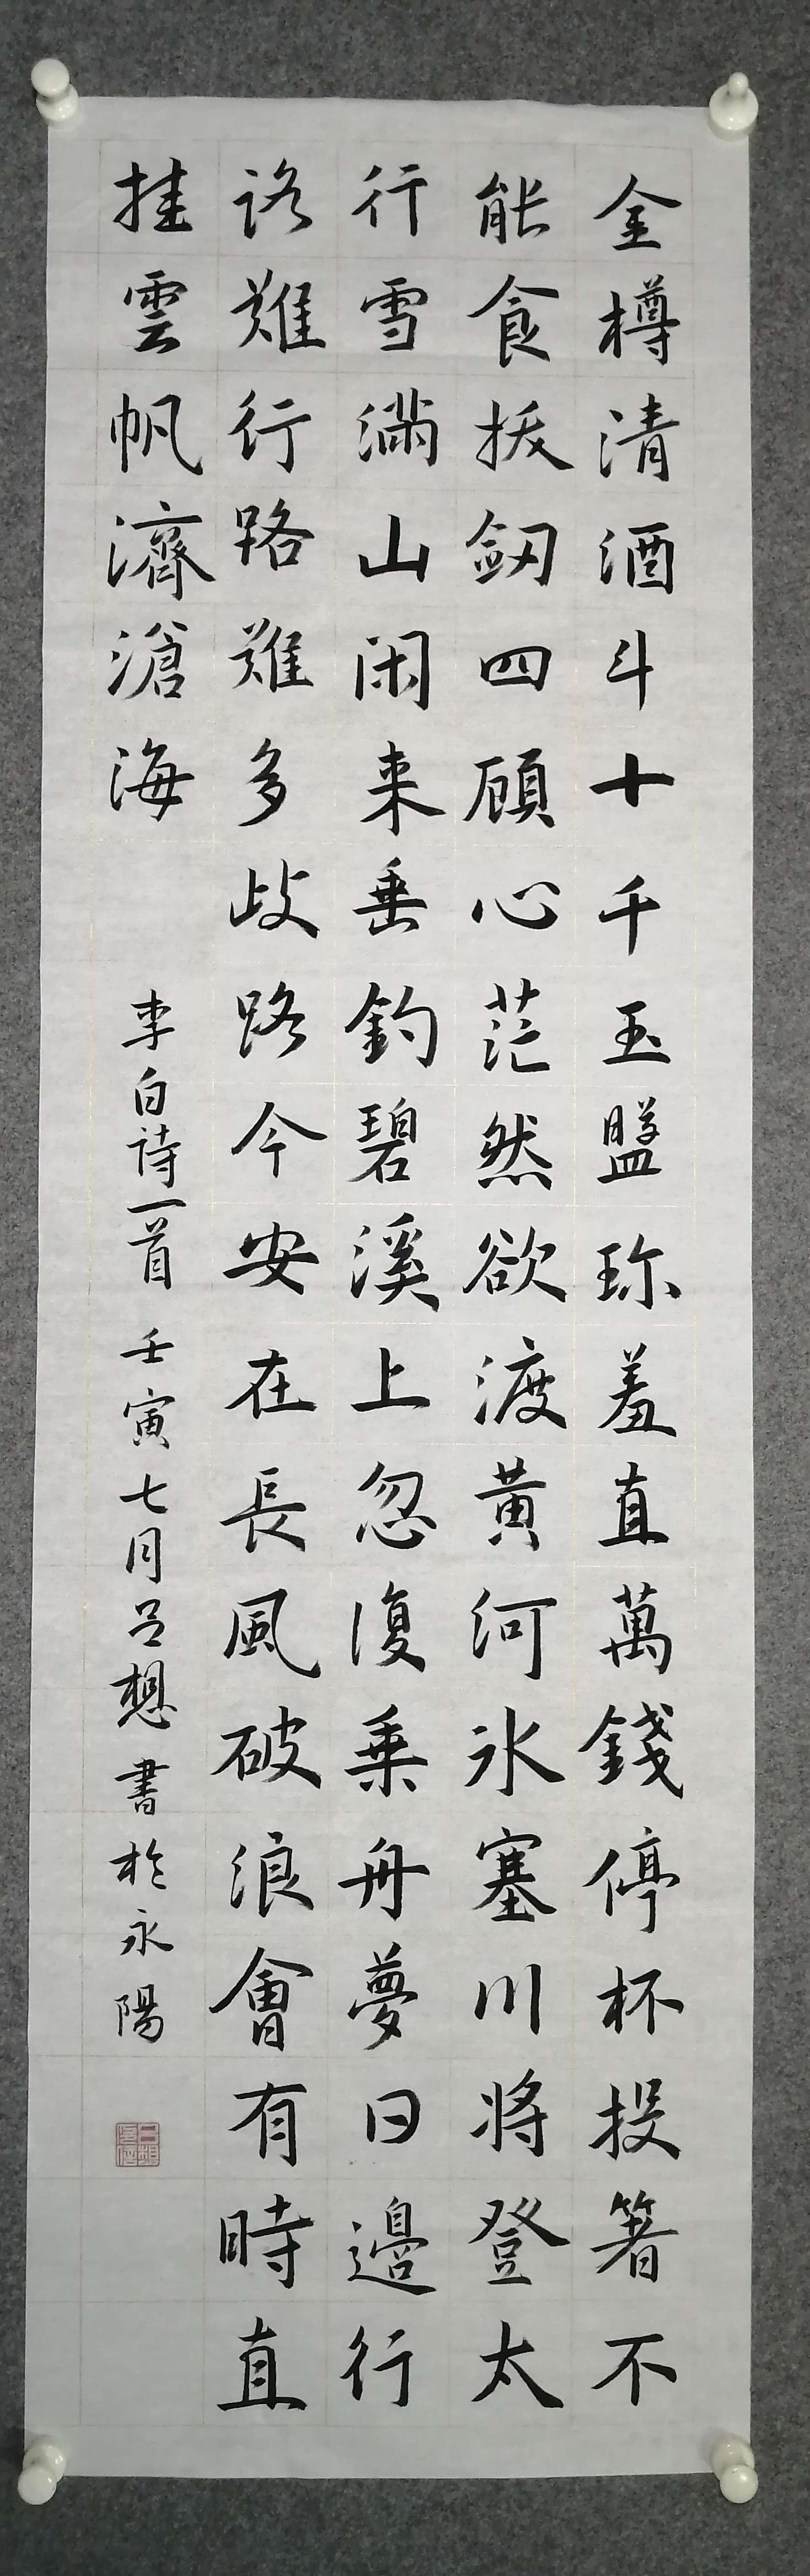 金樽清酒斗十千玉盤珎羞直萬錢停杯投箸不
能食拔劒四顧心茫然欲渡黄河氷塞川将登太
行雪滿山闲来垂釣碧溪上忽復乘舟夢日邊行
路難行路難多歧路今安在長風破浪會有時直
挂雲帆濟滄海
李白詩一首 壬寅七月吕想書於永陽